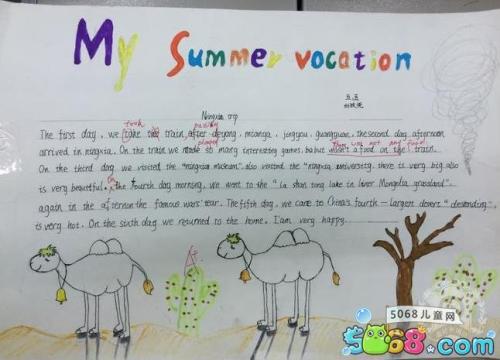 My Summer vocation
五五
Ningxia trip
took passing
The first day, we take the train, after deyong, mianga, jingyou, guangyuan, the second day afternoon
played There was not any food
arrived in ningxia. On the train we made so many interesting games, but didn't a food on the train.
On the third day we visited the "ningxia museum" also visited the "ningxia university, there is very big also
is very beautiful. On the Fourth day morning, we went to the "La shan tong lake in Inner Mongolia grassland",
again in the afternoon the famous wars' tear. The fifth day, we came to China's fourth - largest desert "descending",
is very hot. On the sixth day we returned to the home. I am very happy.
5068儿童网
5068.com